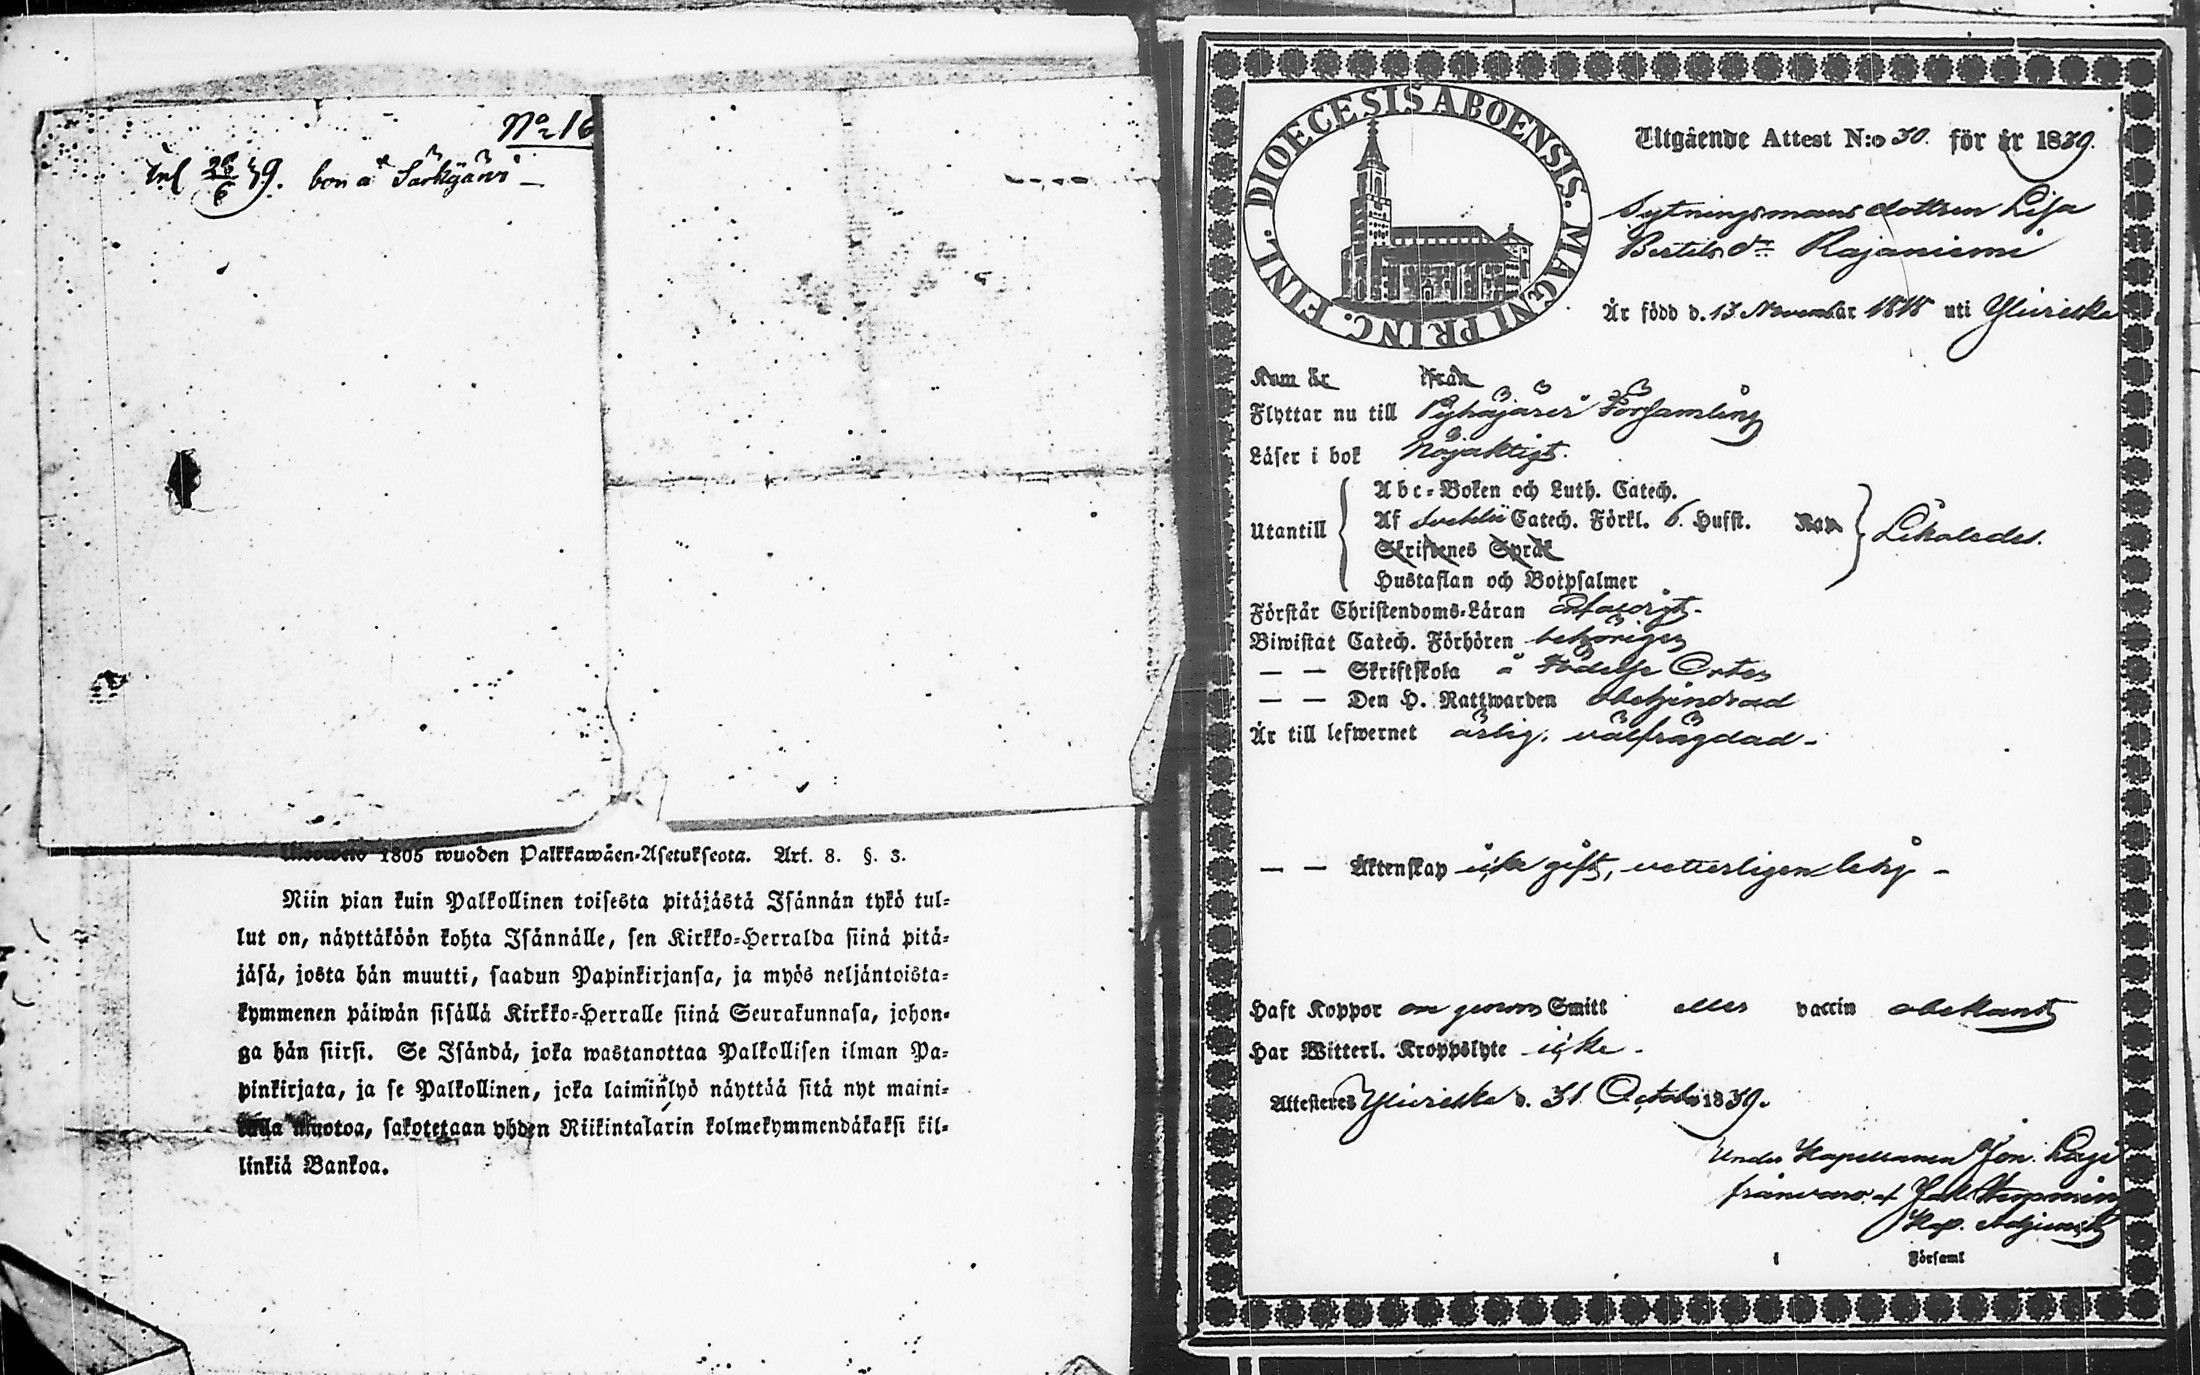 No 16
bor å Särkijärvi
1805 wuoden Palkkawäen-Asetuksesta. Art. 8. §. 3.
Niin pian kuin Palkollinen toisesta pitäjästä Isännän tykö tul-
lut on, näyttäköön kohta Isännälle, sen Kirkko-Herralda siinä pitä-
jäsä, josta hän muutti, saadun Papinkirjansa, ja myös neljäntoista-
kymmenen päiwän sisällä Kirkko-Herralle siinä Seurakunnasa, johon-
ga hän siirsi. Se Isändä, joka wastanottaa Palkollisen ilman Pa-
pinkirjata, ja se Palkollinen, joka laiminlyö näyttää sitä nyt maini-
muotoa, sakotetaan yhden Riikintalarin kolmekymmendäkaksi kil-
linkiä Bankoa.
DIOECESIS ABOENSIS. MAGNI PRINC. FINL.
Utgående Attest N:o 30. för år 1839.
Sytningsmans dottren Lisa
Bertils dr Rajaniemi
Är född d. 13 November 1818 uti Ylivieska
Kom år ifrån
Flyttar nu till Pyhäjärvi Församling
Läser i bok Nöjaktigt.
Utantill
Abc-Boken och Luth. Catech.
Af Svebelii Catech. Förkl. 6. Hufst. Kan
Skriftenes Språk
Hustaflan och Botpsalmer
Likaledes.
Förstår Christendoms-Läran
Biwistat Catech. Förhören behörigen
— — Skriftskola å Födelse Orten
— — Den H. Nattwarden obehindrad
Är till lefwernet ärlig, välfrägdad -
— — Äktenskap icke gift, vetterligen ledig -
Haft Koppor om genom Smitt eller vaccin obekant
Har Witterl. Kroppslyte icke -
Attesteres Ylivieska d. 31 October 1839.
Under Kapellanen Jon. Lagi
frånvaro af Jak.
Kap. Adjunct
i Församl